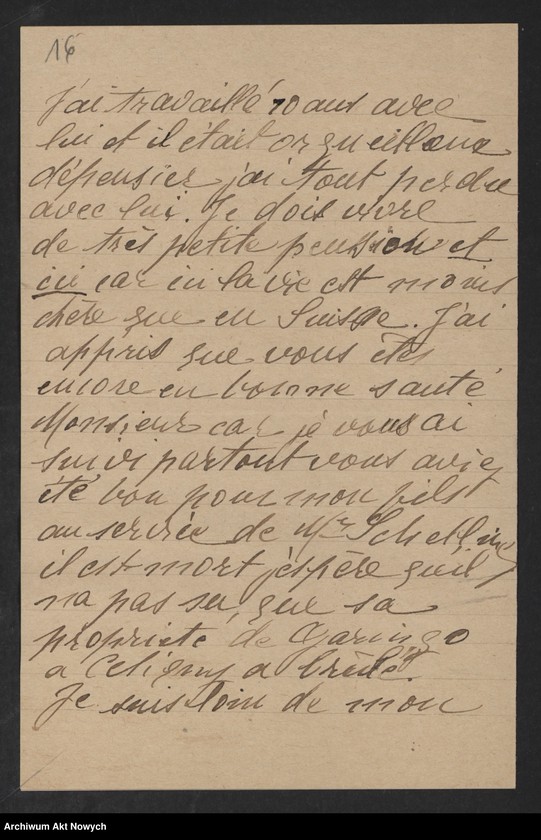 16
J'ai travaillé 10 ans avec
lui et il etait orgueilleux
dépensier j'ai tout perdu
avec lui. Je dois vivre
de très petite pension et
ici car ici la vie est moins
chère que en Suisse. J'ai
appris que vous êtes
encore en bonne santé
Monsieur car je vous ai
suivi partout vous aviez
été bon pour mon fils
au service de Mr Schelling
il est mort j'espère quil
na pas su, que sa
propriete de Garengo
a Celigny a brûlé.
Je suis loin de mon
Archiwum Akt Nowych